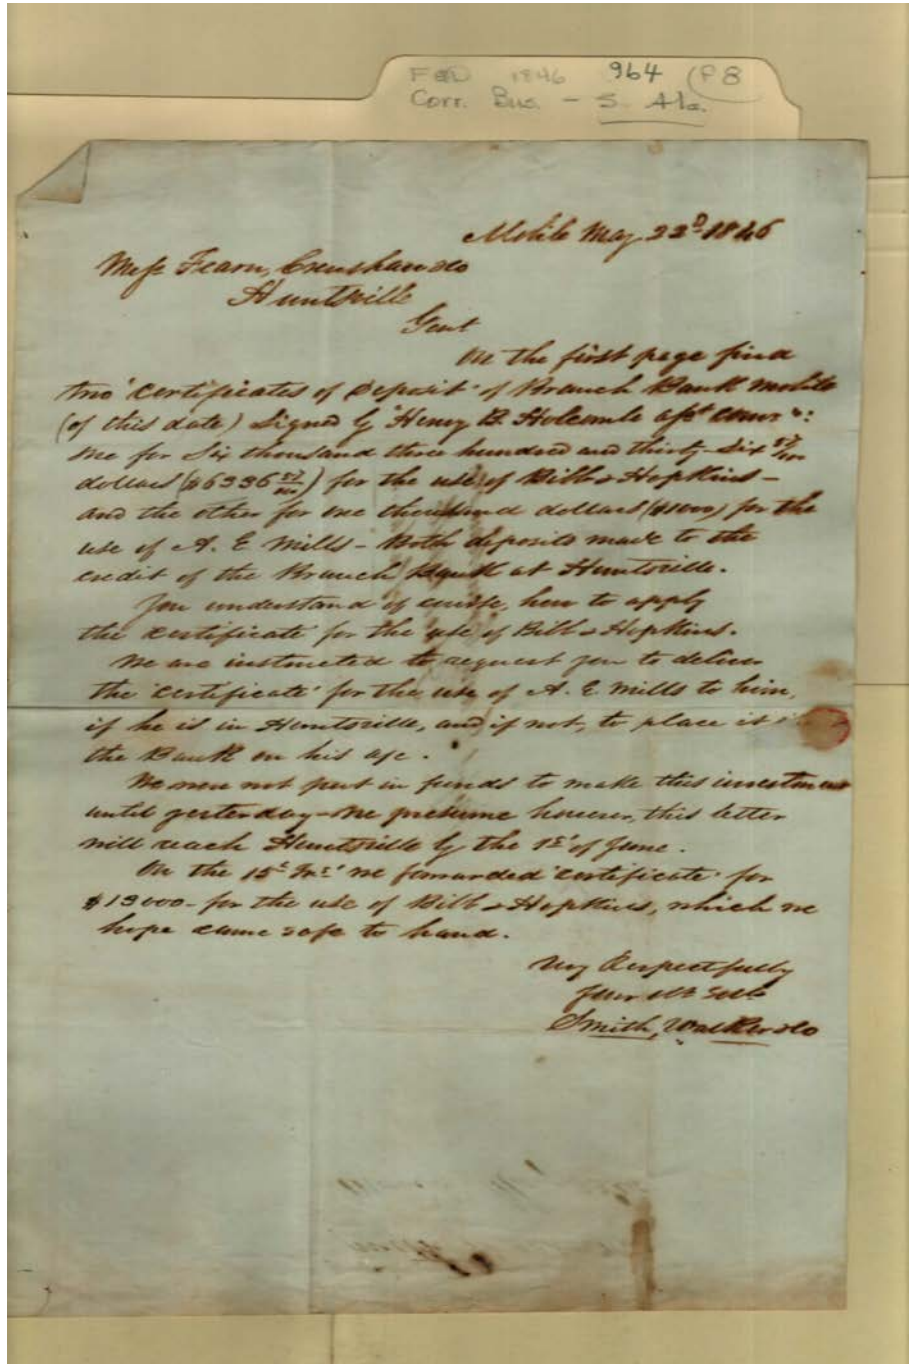 FED 1846 964 (P8
Corr. Bus. - S. Ala.
Mobile May 22D 1846
Mess Fearn, Crenshaw & Co
Huntsville
Gent
On the first page find
two 'certificates of Deposit' of Branch Bank Mobile
(of this date) Signed by Henry B. Holcombe asst
one for Six thousand three hundred and thirty-six 57/100
dollars ($6336 57/100) for the use of Bibb & Hopkins -
and the other for one thousand dollars ($1000) for the
use of A. E Mills - Both deposits made to the
credit of the Branch Bank at Huntsville.
You understand of course, how to apply
the certificate for the use of Bibb & Hopkins.
We are instructed to request you to deliver
the 'certificate' for the use of A. E. Mills to him,
if he is in Huntsville, and if not, to place it in
the Bank on his a/c.
We were not put in funds to make this investment
until yesterday - We presume however, this letter
will reach Huntsville by the 1st of June.
On the 15t we forwarded 'certificate' for
$13000 - for the use of Bibb & Hopkins, which we
hope came safe to hand.
Very Respectfully
Your Obt
Smith, Walker & Co